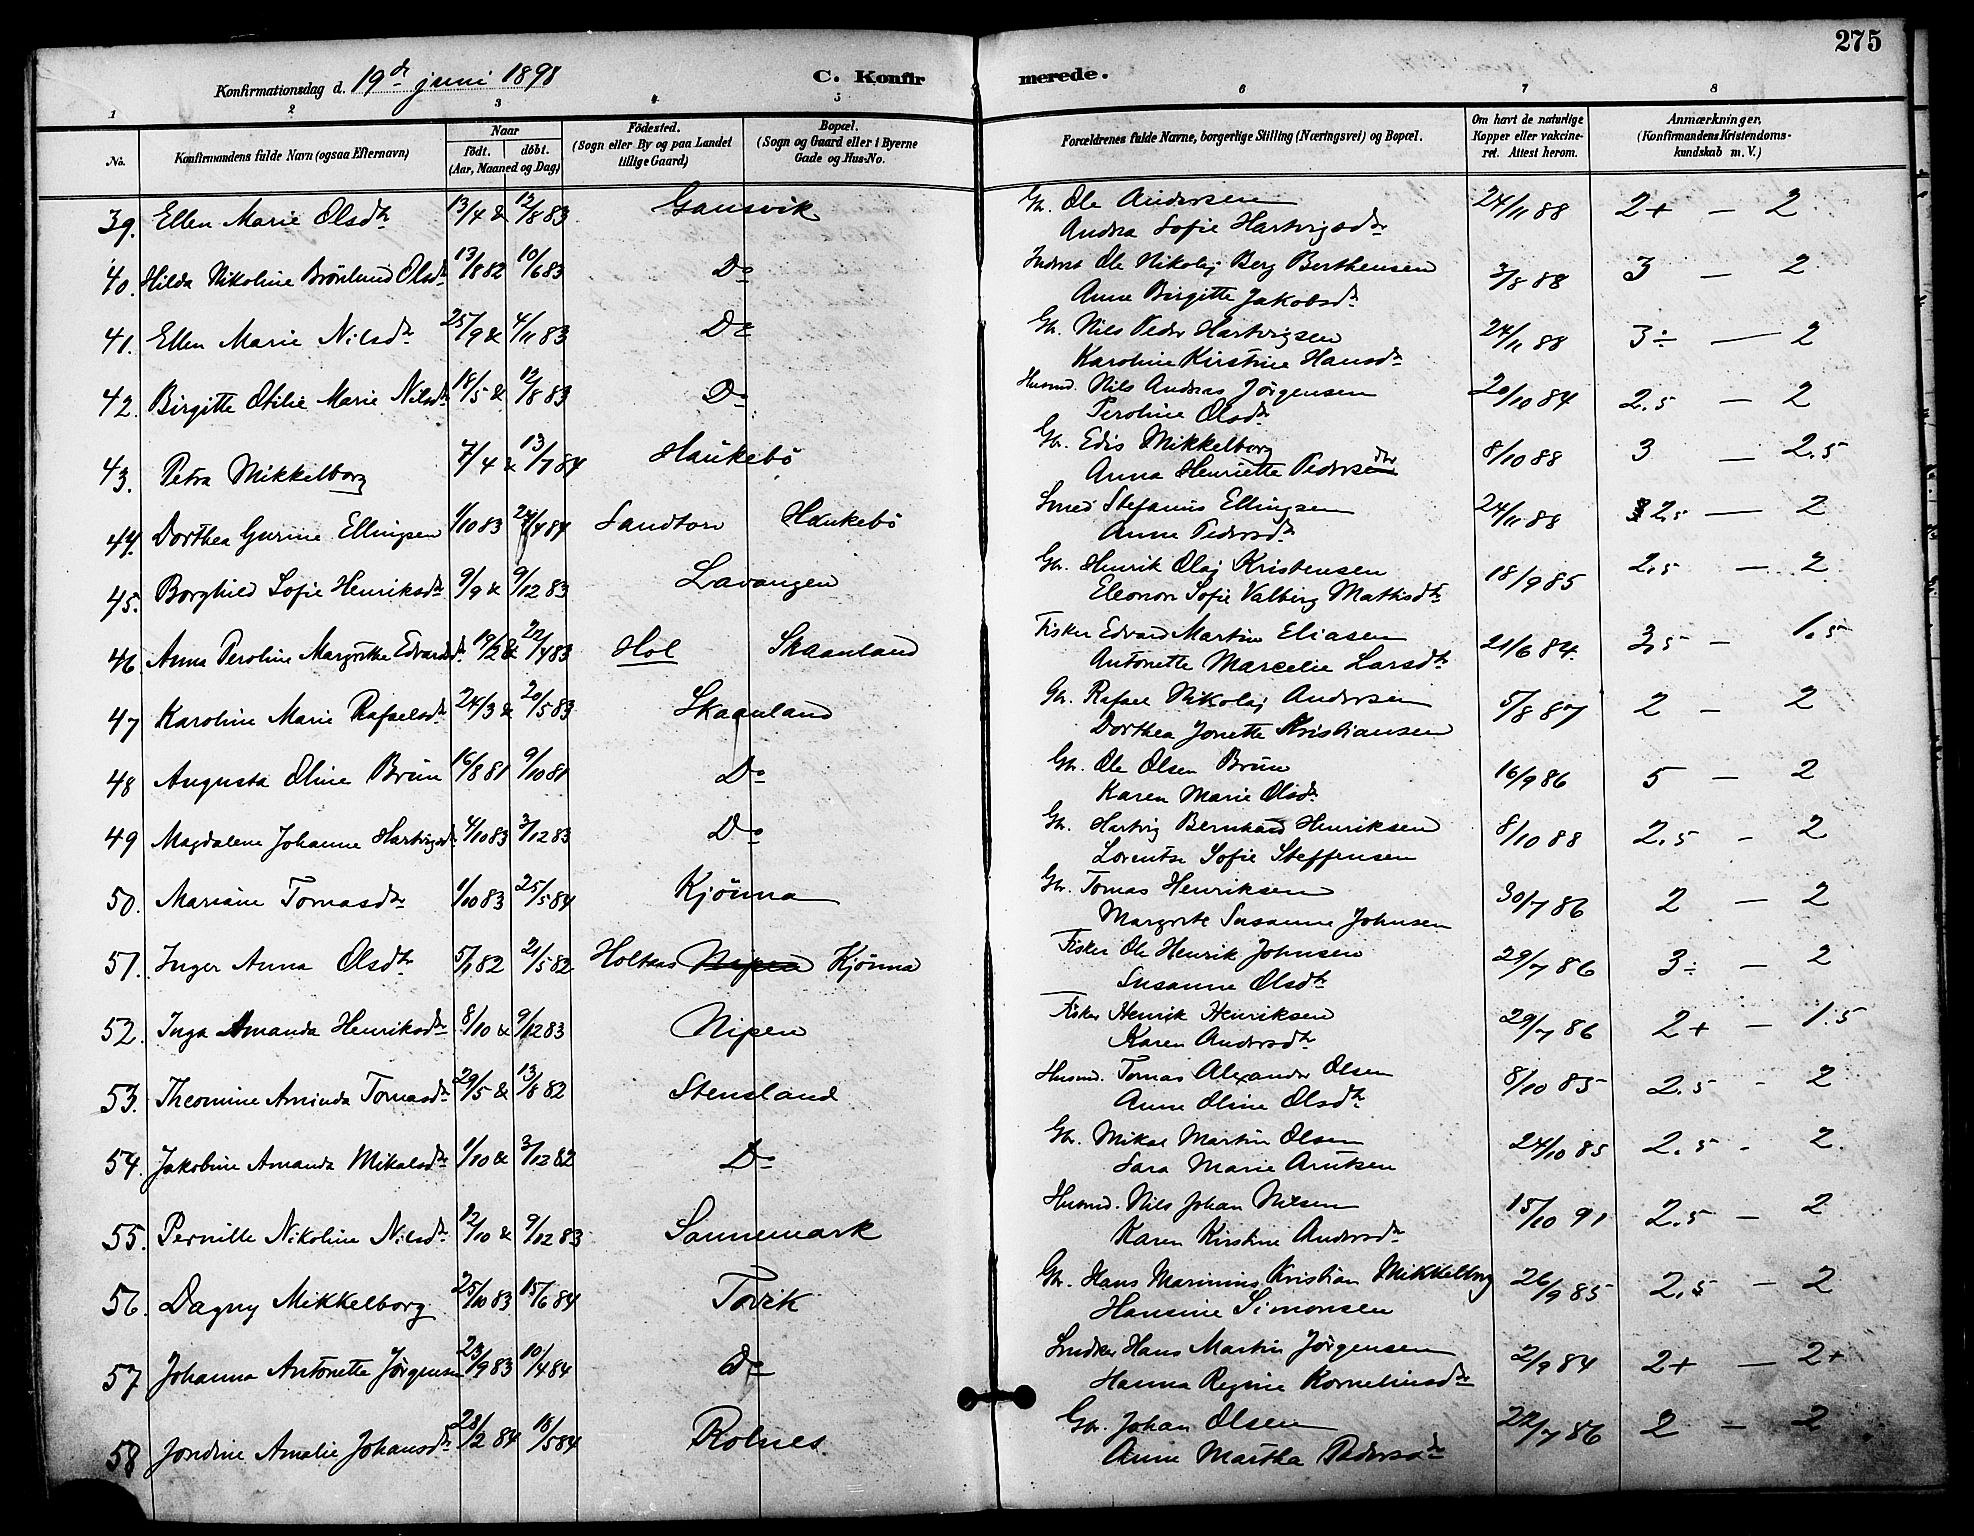 275
Konfirmationsdag d. 19de juni 1898
C. Konfirmerede.
1 2 3 4 5 6 7 8
No.
Konfirmandens fulde Navn (ogsaa Efternavn)
Naar
födt. döbt.
(Aar, Maaned og Dag)
Födested.
(Sogn eller By og paa Landet
tillige Gaard)
Bopæl.
(Sogn og Gaard eller i Byerne
Gade og Hus-No.
Forældrenes fulde Navne, borgerlige Stilling (Næringsvei) og Bopæl.
Om havt de naturlige
Kopper eller vakcine-
ret. Attest herom.
Anmærkninger,
(Konfirmandens Kristendoms-
kundskab m. V.)
39. Ellen Marie Olsdtr 13/4 & 12/8 83 Gausvik Gb. Ole Andersen 24/11 88 2+ — 2
Andrea Sofie Hartvigsdtr
40. Hilda Nikoline Brönlund Olsdtr 13/8 82 10/6 83 Do Inderst Ole Nikolaj Berg Berthensen 3/8 88 3 — 2
Anne Birgitte Jakobsdtr
41. Ellen Marie Nilsdtr 25/9 & 4/11 83 Do Gb. Nils Peder Hartvigsen 24/11 88 3÷ — 2
Karoline Kirstine Hansdtr
42. Birgitte Otilie Marie Nilsdtr 18/5 & 12/8 83 Do Husmd. Nils Andreas Jörgensen 20/10 84 2.5 — 2
Peroline Olsdtr
43. Petra Mikkelborg 7/4 & 13/7 84 Haukebö Gb. Edis Mikkelborg 8/10 88 3 — 2.5
Anna Henriette Pedersdtr
44. Dorthea Gurine Ellingsen 1/10 83 24/4 84 Sandtorv Haukebö Smed Stefanus Ellingsen 24/11 88 2.5 — 2
Anne Pedersdtr
45. Borghild Sofie Henriksdtr 9/9 & 9/12 83 Lavangen Gb. Henrik Olaj Kristensen 18/9 85 2.5 — 2
Eleonore Sofie Valberg Mathisdtr
46. Anna Peroline Margrethe Edvardsdtr 19/2 & 22/4 83 Hol Skaanland Fisker Edvard Martin Eliasen 21/6 84. 3.5 — 1.5
Antonette Marcelie Larsdtr
47 Karoline Marie Rafaelsdtr 24/3 & 20/5 83 Skaanland Gb. Rafael Nikolaj Andersen 5/8 87 2 — 2
Dorthea Jonette Kristiansen
48 Augusta Oline Brun 16/8 81 9/10 81 Do Gb. Ole Olsen Brun 16/9 86 5 — 2
Karen Marie Olsdtr
49 Magdalene Johanne Hartvigsdtr 4/10 83 3/12 83 Do Gb. Hartvig Bernhard Henriksen 8/10 88 2.5 — 2
Lorentse Sofie Steffensen
50. Mariane Tomasdtr 1/10 83 25/5 84 Kjönna Gb. Tomas Henriksen 30/7 86 2 — 2
Margrete Susanne Johnsen
51. Inger Anna Olsdtr 5/1 82 21/5 82 Holtaas Nipen Kjönna Fisker Ole Henrik Johnsen 29/7 86 3÷ — 2
Susanne Olsdtr
52. Inga Amanda Henriksdtr 8/10 & 9/12 83 Nipen Fisker Henrik Henriksen 29/7 86 2+ — 1.5
Karen Andersdtr
53. Theomine Aminda Tomasdtr 29/5 & 13/8 82 Stensland Husmd. Tomas Alexander Olsen 8/10 85 2.5 — 2
Anne Oline Olsdtr
54. Jakobine Amanda Mikalsdtr 1/10 & 3/12 82 Do Gb. Mikal Martin Olsen 24/10 85 2.5 - 2
Sara Marie Arntsen
55. Pernille Nikoline Nilsdtr 12/10 & 9/12 83 Sannemark Husmd. Nils Johan Nilsen 15/10 91 2.5 — 2
Karen Kirstine Andersdtr
56. Dagny Mikkelborg 25/10 83 15/6 84 Tovik Gb. Hans Marinius Kristian Mikkelborg 26/9 85 2.5 — 2
Hansine Simonsen
57 Johanna Antonette Jörgensen 23/9 83 10/4 84 Do Snedker Hans Martin Jörgensen 2/9 84 2+ — 2+
Hanna Regine Korneliusdtr
58 Jondine Amalie Johansdtr 28/2 84 18/5 84 Rolnes Gb. Johan Olsen 22/7 86 2 — 2
Anne Martha Pedersdtr